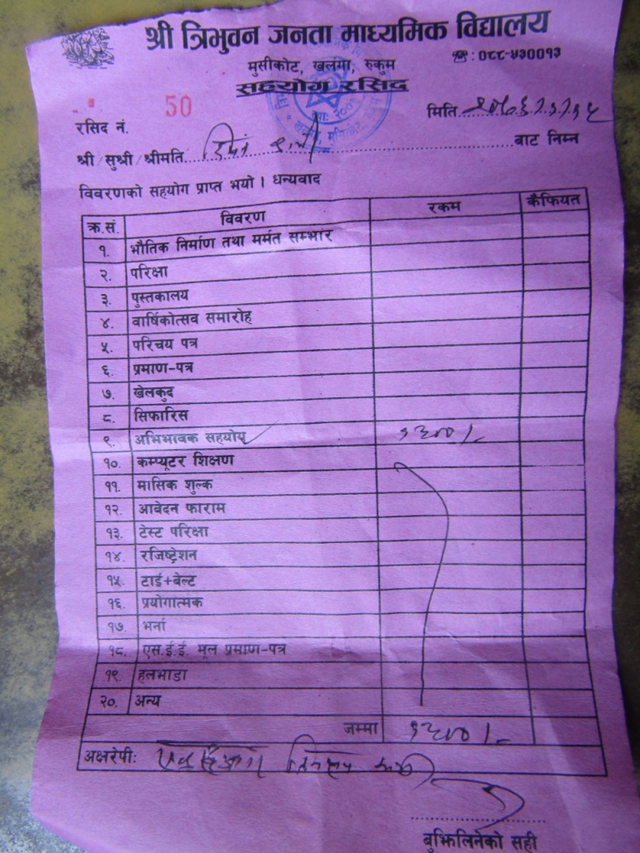 श्री त्रिभुवन जनता माध्यमिक विद्यालय
मुसीकोट, खलंगा, रुकुम
☎: ०८८-५३००१३
सहयोग रसिद
रसिद नं. 50
मिति
श्री/सुश्री/श्रीमति बाट निम्न
विवरणको सहयोग प्राप्त भयो । धन्यवाद
क्र.सं. विवरण रकम कैफियत
१. भौतिक निर्माण तथा मर्मत सम्भार
२. परिक्षा
३. पुस्तकालय
४. वार्षिकोत्सव समारोह
५. परिचय पत्र
६. प्रमाण-पत्र
७. खेलकुद
८. सिफारिस
९. अभिभावक सहयोग १३००/-
१०. कम्प्यूटर शिक्षण
११. मासिक शुल्क
१२. आवेदन फाराम
१३. टेस्ट परिक्षा
१४. रजिष्ट्रेशन
१५. टाई+बेल्ट
१६. प्रयोगात्मक
१७. भर्ना
१८. एस.ई.ई. मूल प्रमाण-पत्र
१९. हलभाडा
२०. अन्य
जम्मा १३००/-
अक्षरेपी:
बुझिलिनेको सही